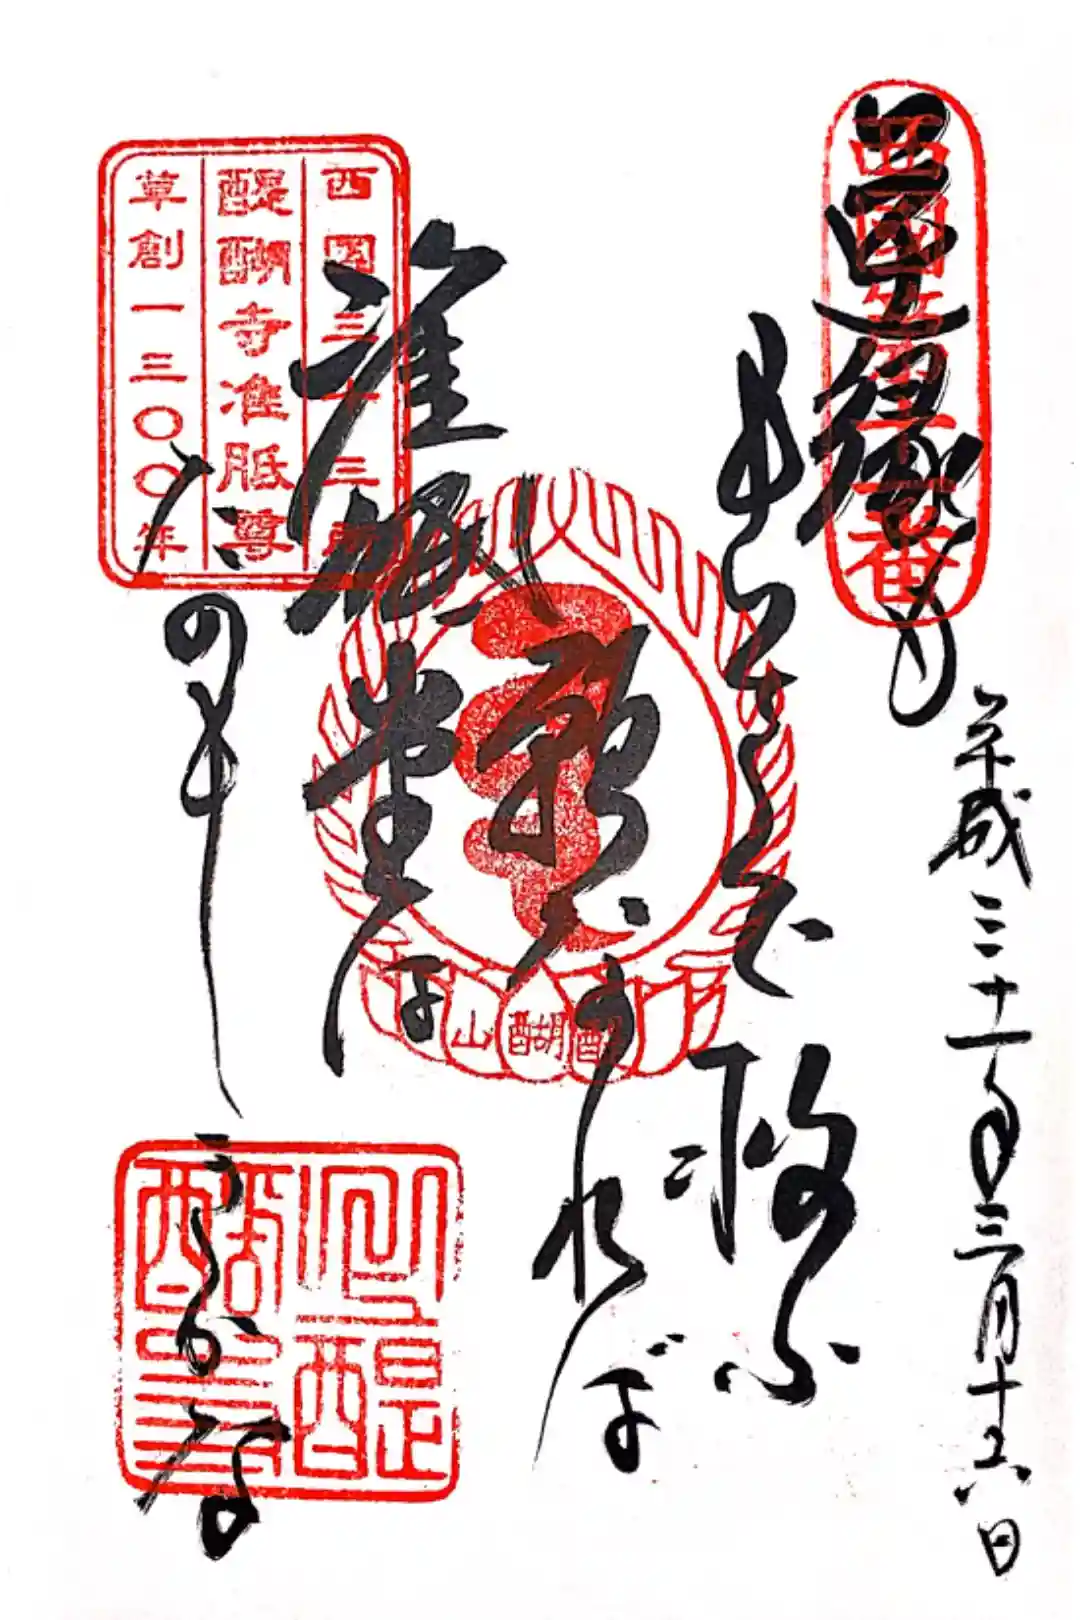 平成三十一年三月十六日
西國第十一番
逆縁も
もらさで救ふ
願なれば
准胝堂は
たのもしきかな
西国三十三所
醍醐寺准胝尊
草創一三〇〇年
醍醐山